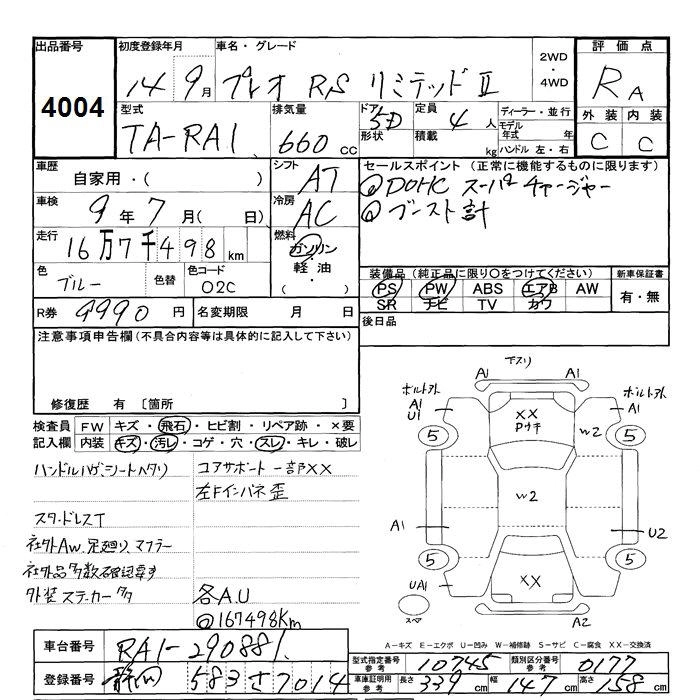 出品番号 初度登録年月 車名・グレード 2WD・4WD 評価点
4004 14 9月 プレオ RS リミテッドⅡ RA
型式 排気量 ドア 形状 定員 積載 ディーラー・並行 外装 内装
TA-RA1 660cc 5D 4人 kg モデル年式 年 ハンドル 左・右 C C
車歴 シフト セールスポイント (正常に機能するものに限ります)
自家用・( ) AT @DOHC スーパーチャージャー
車検 9年7月( 日) 冷房 AC @ブースト計
走行 16万7千498km 燃料 ガソリン
軽油・( )
色 ブルー 色替 色コード 02C
装備品(純正品に限り○をつけてください) 新車保証書
PS PW ABS エアB AW 有・無
SR ナビ TV カワ
R券 9990円 名変期限 月 日 後日品
注意事項申告欄(不具合内容等は具体的に記入して下さい)
修復歴 有 〔箇所
検査員 FW キズ・飛石・ヒビ割・リペア跡・×要
記入欄 内装 キズ・汚レ・コゲ・穴・スレ・キレ・破レ
ハンドルハゲ、シートヘタリ コアサポート一部XX
左Fインパネ歪
スタッドレスT
社外AW、足廻り、マフラー
社外品多数確認要す
外装ステッカー多々 各A.U
@167498Km
下スリ
A1 A1
ボルト欠 ボルト欠
A1 U1 A1
XX
Pウキ
W2
5 5
W2
A1 U2
5 5
UA1 XX
スペア A2
A−キズ E−エクボ U−凹み W−補修跡 S−サビ C−腐食 XX−交換済
車台番号 RA1-290881
型式指定番号 参考 10745 類別区分番号 参考 0177
登録番号 静岡 583 さ 7014
車庫証明用 参考 長さ 339cm 幅 147cm 高さ 158cm